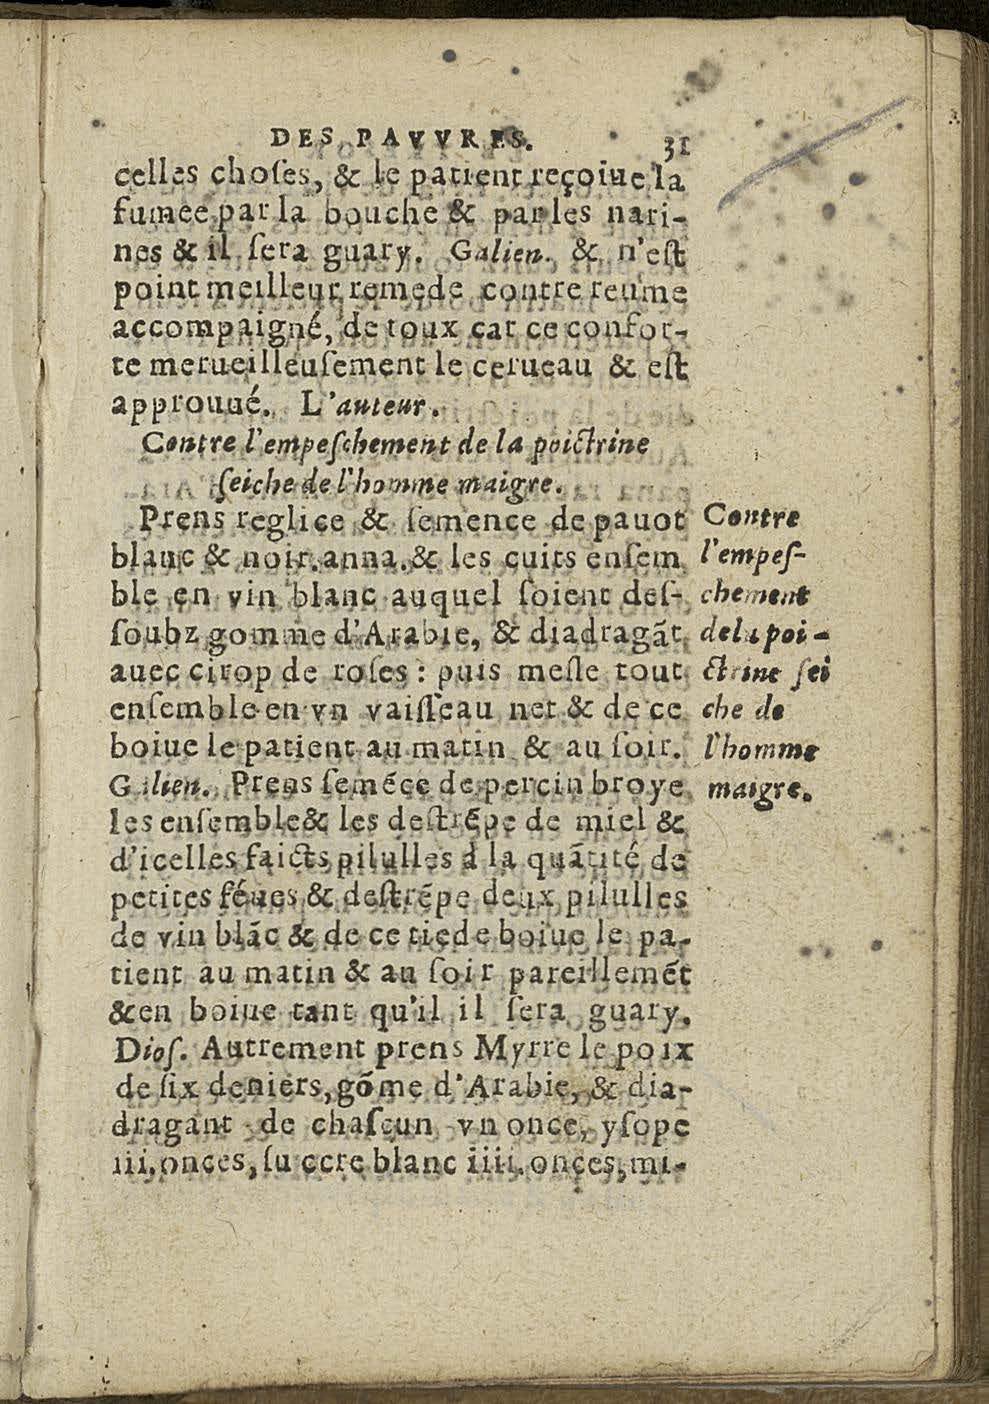 DES PAVVRES. 31
celles choſes, & le patient reçoiue la
fumee par la bouche & par les nari-
nes & il ſera guary. Galien. & n'eſt
point meilleur remede contre reume
accompaigné, de toux car ce confor-
te merueilleuſement le cerueau & eſt
approuué. L'auteur.
Contre l'empeſchement de la poictrine
ſeiche de l'homme maigre.
Prens reglice & ſemence de pauot
blanc & noir. anna. & les cuits enſem
ble en vin blanc auquel ſoient deſ-
ſoubz gomme d'Arabie, & diadragãt
auec cirop de roſes : puis meſle tout
enſemble en vn vaiſſeau net & de ce
boiue le patient au matin & au ſoir.
Galien. Prens ſeméce de percin broye
les enſemble & les deſtrẽpe de miel &
d'icelles faicts pilulles à la quãtité de
petites féues & deſtrẽpe deux pilulles
de vin blãc & de ce tiede boiue le pa-
tient au matin & au ſoir pareillemẽt
& en boiue tant qu'il il ſera guary.
Dioſ. Autrement prens Myrre le poix
de ſix deniers, gõme d'Arabie, & dia-
dragant de chaſcun vn once, yſope
iii, onces, ſuccre blanc iiii. onces, mi-
Contre
l'empeſ-
chement
de la poi-
ctrine ſei
che de
l'homme
maigre.